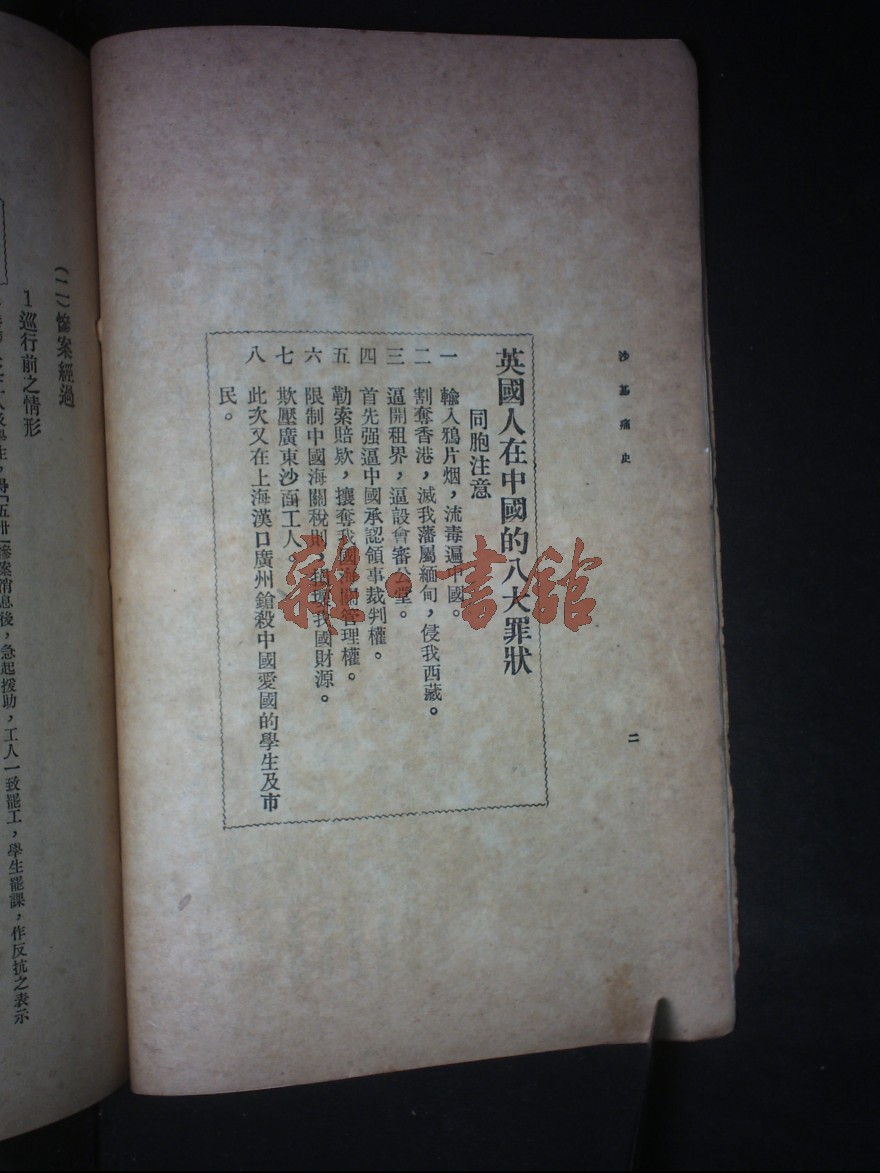 沙基痛史
二
英國人在中國的八大罪狀
同胞注意
一 輸入鴉片烟，流毒遍中國。
二 割奪香港，滅我藩屬緬甸，侵我西藏。
三 逼開租界，逼設會審公堂。
四 首先强逼中國承認領事裁判權。
五 勒索賠欵，攘奪我國海關管理權。
六 限制中國海關稅則，我國財源。
七 欺壓廣東沙面工人。
八 此次又在上海漢口廣州鎗殺中國愛國的學生及市
民。
雜·書館
(二)慘案經過
1巡行前之情形
慘案消息後，急起援助，工人一致罷工，學生罷課，作反抗之表示